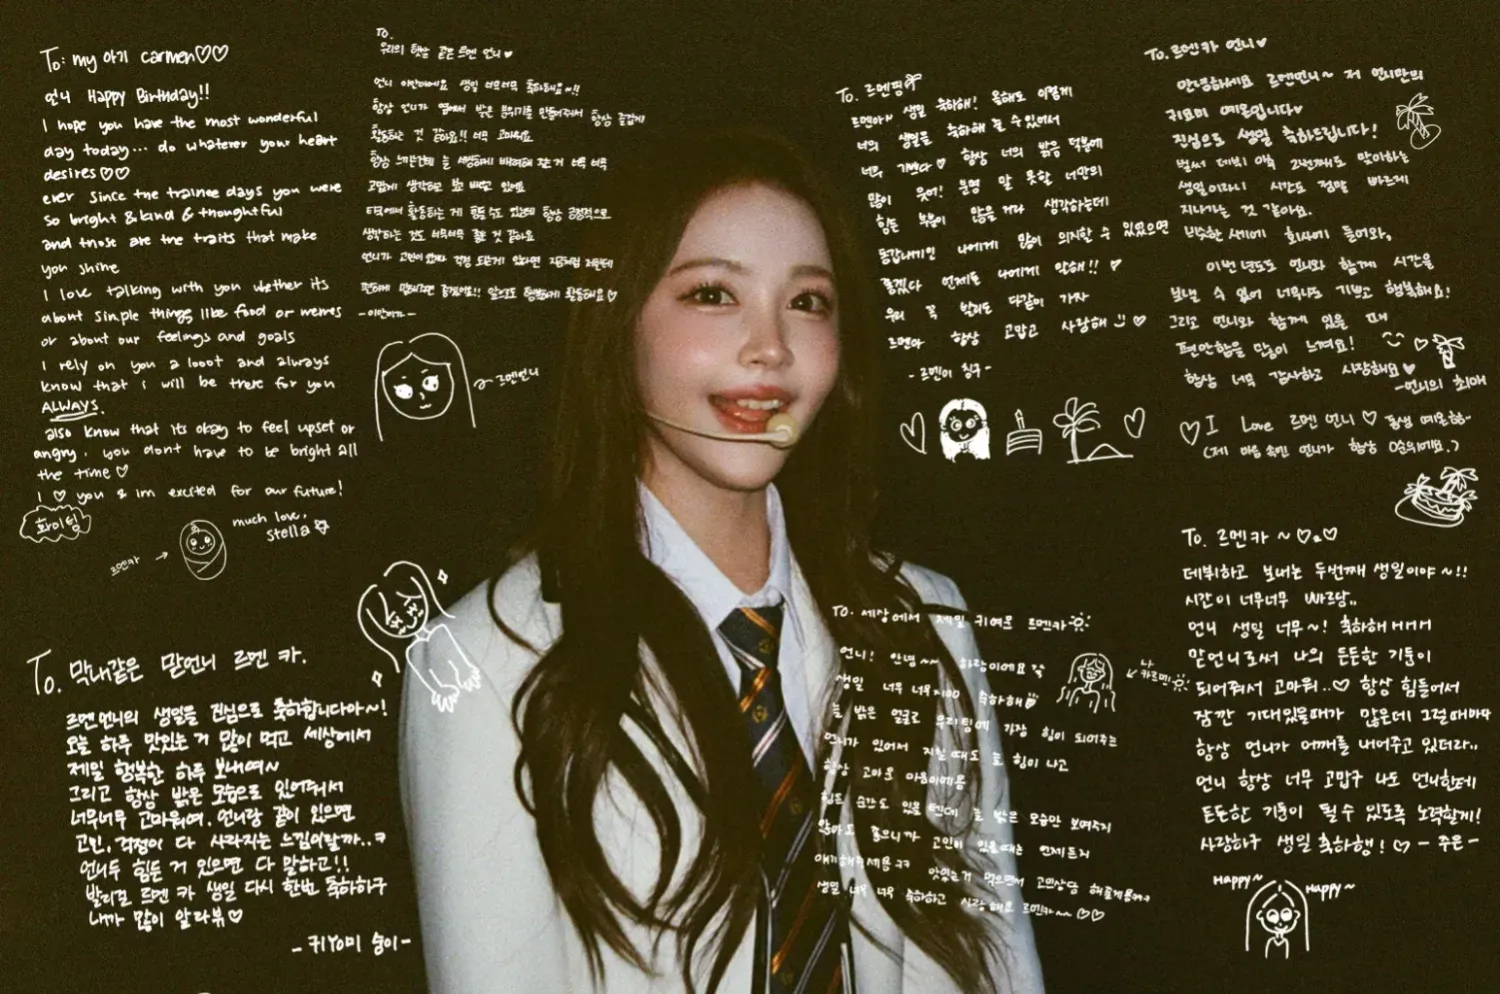 To: my 아기 carmen♡♡
언니 Happy Birthday!!
I hope you have the most wonderful
day today... do whatever your heart
desires♡♡
ever since the trainee days you were
so bright & kind & thoughtful
and those are the traits that make
you shine
I love talking with you whether its
about simple things like food or memes
or about our feelings and goals
I rely on you a looot and always
know that i will be there for you
ALWAYS.
also know that its okay to feel upset or
angry. you dont have to be bright all
the time♡
I ♡ you & im excited for our future!
화이팅
much love,
stella
르멘카 →
To.
우리의 햇살 같은 르멘 언니♥
언니 이안이에요 생일 너무너무 축하해요!!
항상 언니가 옆에서 밝은 분위기를 만들어줘서 항상 즐겁게
활동하는 것 같아요!! 너무 고마워요
항상 느끼는건데 늘 배려해 주는 거 너무 너무
고맙게 생각하고 있어요
타국에서 활동하는 게 힘들 수도 있는데 항상 긍정적으로
생각하는 것도 너무너무 좋은 것 같아요
언니가 고민이 있다면
편하게 말해주면 좋겠어요!! 앞으로도 행복하게 활동해요♡
-이안이가-
르멘언니
To. 르멘핑
르멘아~ 생일 축하해! 올해도 이렇게
너의 생일을 축하해 줄 수 있어서
너무 기쁘다♡ 항상 너의 밝음 덕분에
많이 웃어! 분명 말 못할 너만의
힘든 부분이 많을거라 생각하는데
동갑내기인 나에게 많이 의지할 수 있었으면
좋겠다 언제든 나에게 말해!! ♡
우리 꼭 발리도 다같이 가자
르멘아 항상 고맙고 사랑해 ♡
-르멘이 칭구-
To. 르멘카 언니♥
안녕하세요 르멘언니~ 저 언니만의
귀요미 예온입니다♥
진심으로 생일 축하드립니다!
벌써 데뷔 이후 2번째로 맞이하는
생일이라니 시간도 정말 빠르게
지나가는 것 같아요.
비슷한 시기에 회사에 들어와,
이번 년도도 언니와 함께 시간을
보낼 수 있어 너무나도 기쁘고 행복해요!
그리고 언니와 함께 있을 때
편안함을 많이 느껴요!
항상 너무 감사하고 사랑해요♥
-언니의 최애
♡ I Love 르멘 언니 ♡ 동생 예온이-
(제 마음 속엔 언니가 항상 0순위에요.)
To. 막내같은 맏언니 르멘 카.
르멘언니의 생일을 진심으로 축하합니다아~!
오늘 하루 맛있는 거 많이 먹고 세상에서
제일 행복한 하루 보내여~
그리고 항상 밝은 모습으로 있어줘서
너무너무 고마워여. 언니랑 같이 있으면
고민, 걱정이 다 사라지는 느낌이랄까..ㅋ
언니두 힘든 거 있으면 다 말하고!!
발리로 르멘 카 생일 다시 한번 축하하구
내가 많이 알라뷰♡
-귀Yomi 숭이-
To. 세상에서 제일 귀여운 르멘카
언니! 안녕~~ 하람이에요
생일 너무 너무×100 축하해
늘 밝은 얼굴로 우리팀에 가장 힘이 되어주는
언니가 있어서 지칠 때도 늘 힘이 나고
항상 고마운 마음이에용
힘든 순간도 있을 텐데 늘 밝은 모습만 보여주지
않아도 좋으니까 고민이 있을때는 언제든지
얘기해주세용ㅋㅋ 맛있는거 먹으면서 고민상담 해줄게용ㅋㅋ
생일 너무 너무 축하하고 사랑해요 르멘카~~♡♡
나
카르멘
To. 르멘카~♡.♡
데뷔하고 보내는 두번째 생일이야~!!
시간이 너무너무 빠르당..
언니 생일 너무~! 축하해ㅐㅐㅐ
맏언니로써 나의 든든한 기둥이
되어줘서 고마워..♡ 항상 힘들어서
잠깐 기대있을때가 많은데 그럴때마다
항상 언니가 어깨를 내어주고 있더라..
언니 항상 너무 고맙구 나도 언니한테
든든한 기둥이 될 수 있도록 노력할게!
사랑하구 생일 축하행!♡ -주은-
Happy~ Happy~